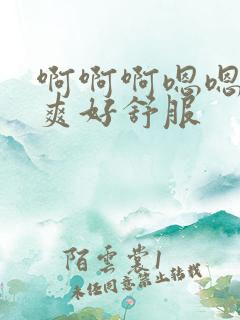 啊啊啊嗯嗯
爽好舒服
陌雲裳1
未经同意禁止转载